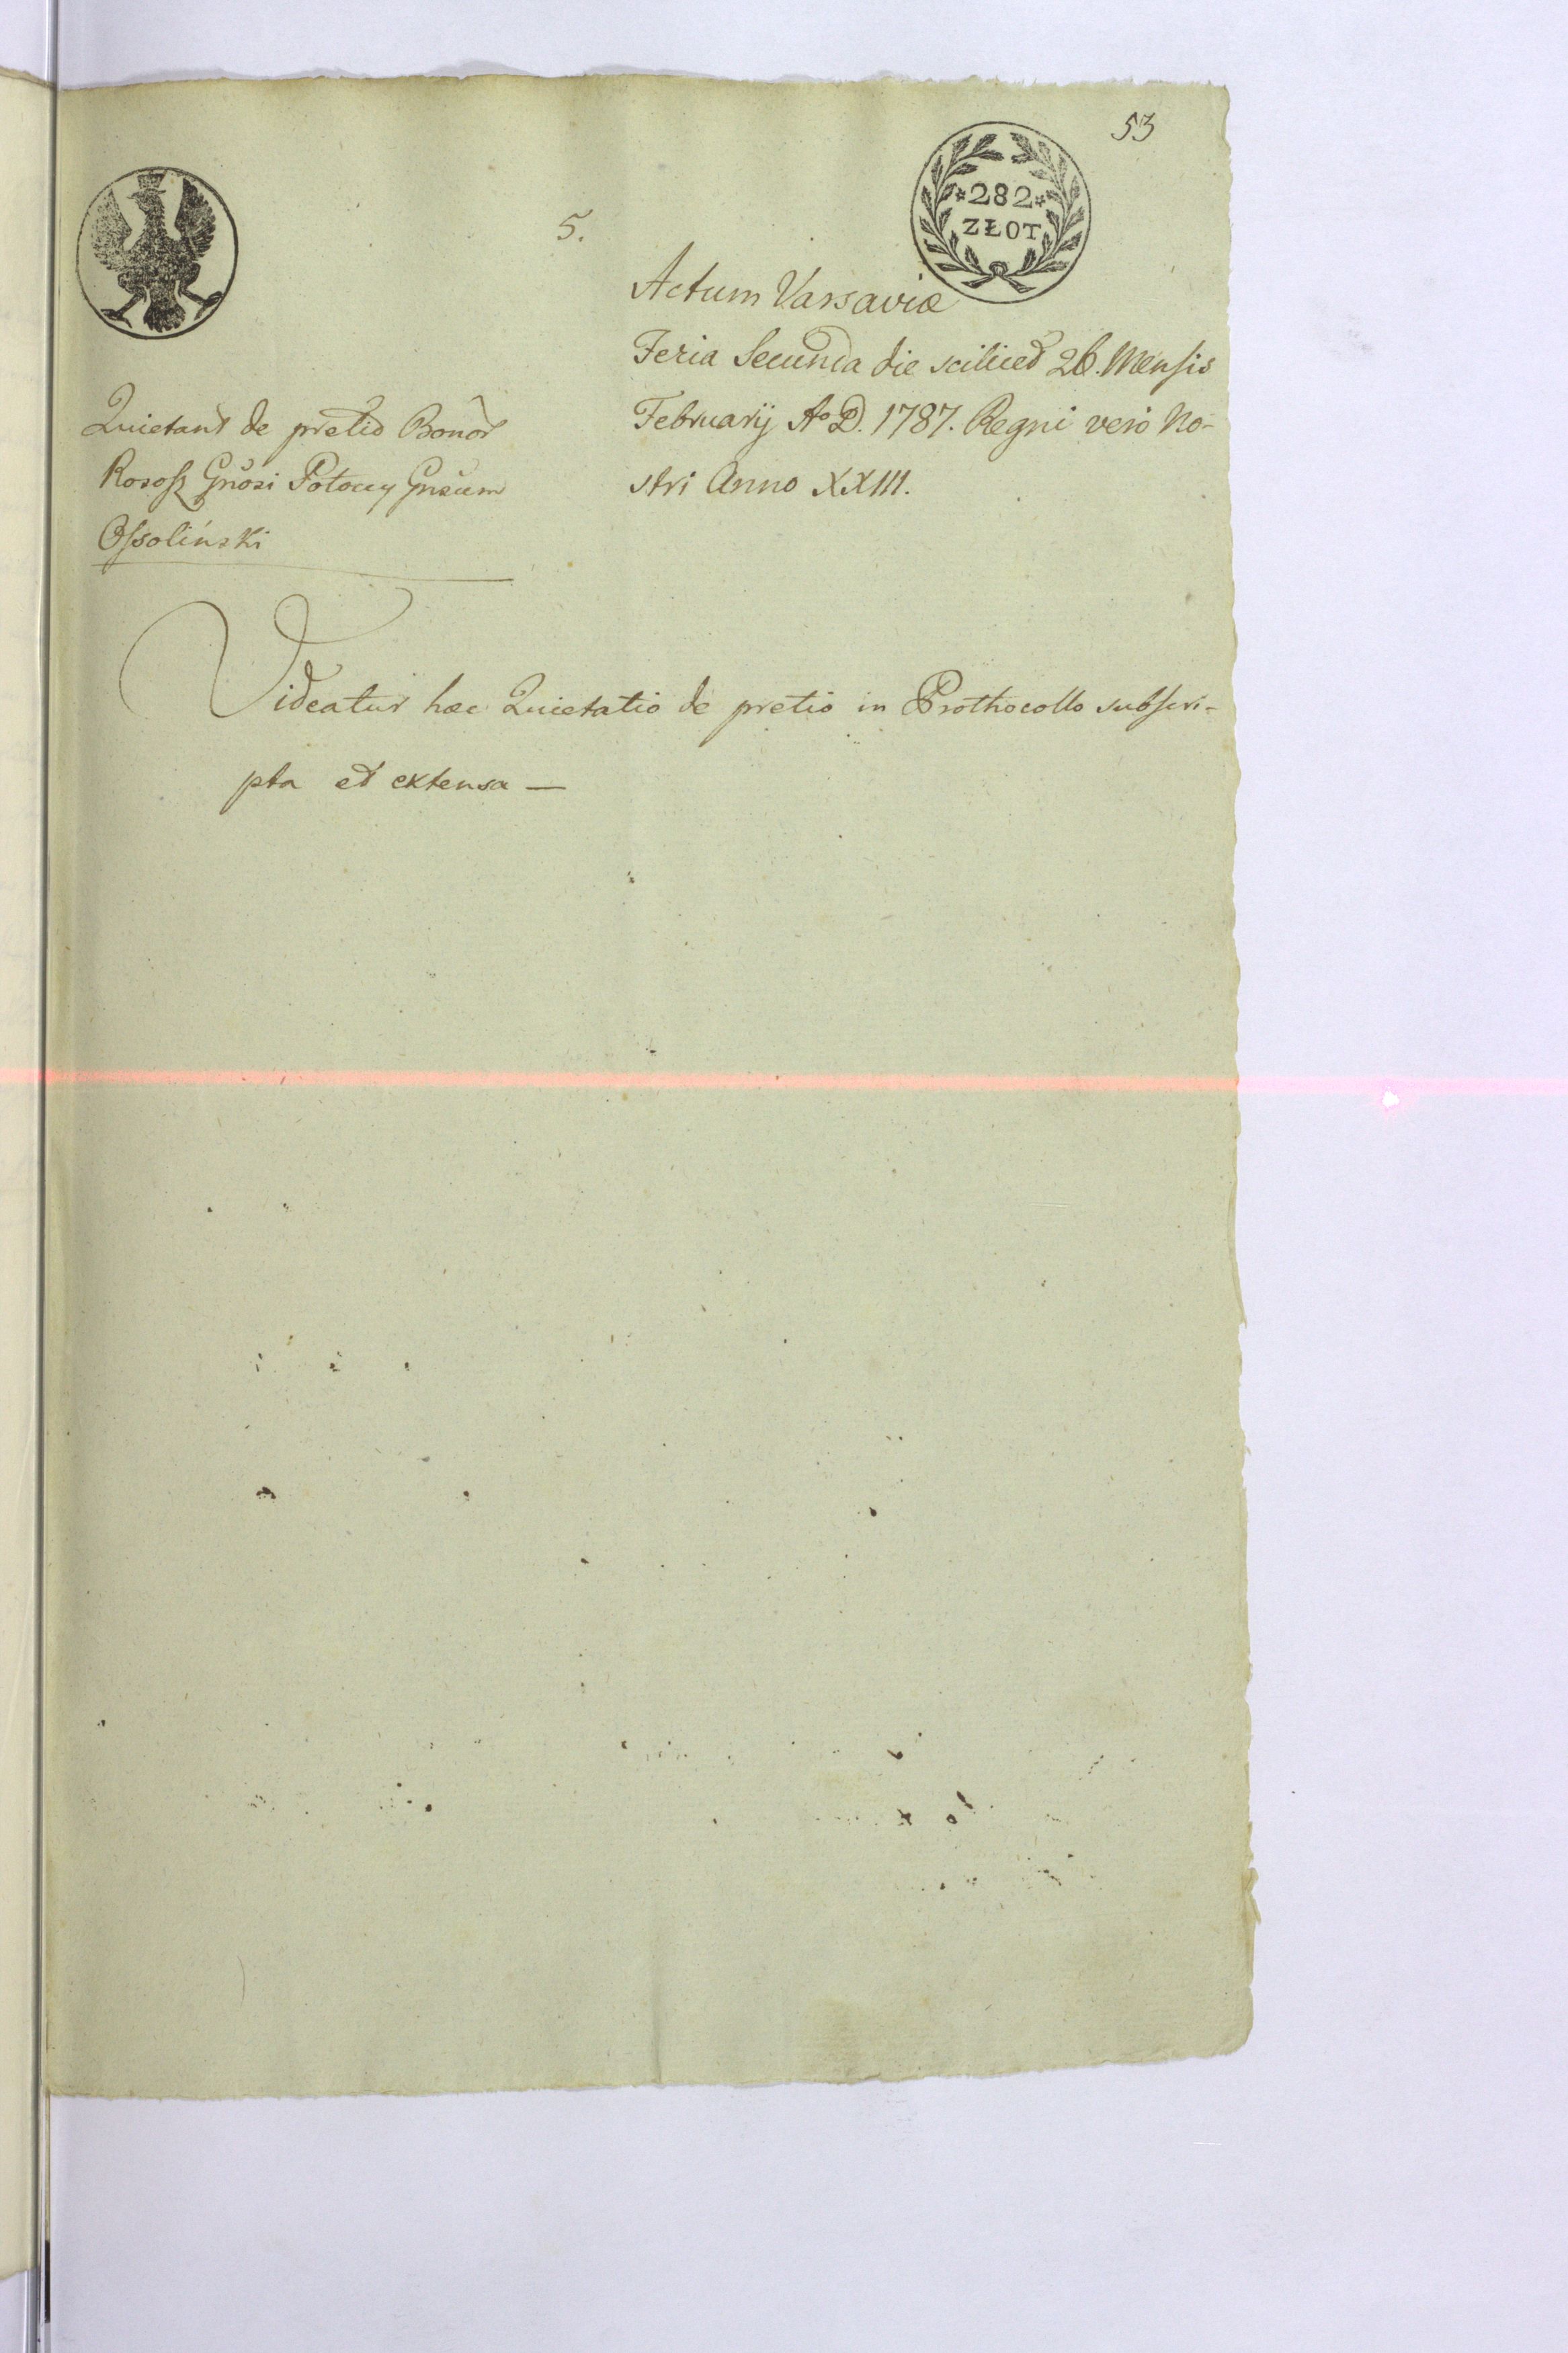 53
*282*
ZŁOT
5.
Actum Varsaviæ
Feria Secunda die scilicet 26. Mensis
February Ao D. 1787. Regni vero No-
stri Anno XXIII.
Quietant de pretio Bonor
Rososz Gnosi Potoccy Gnsum
Ossoliński
Videatur hæc Quietatio de pretio in Prothocollo subscri-
pta et extensa —